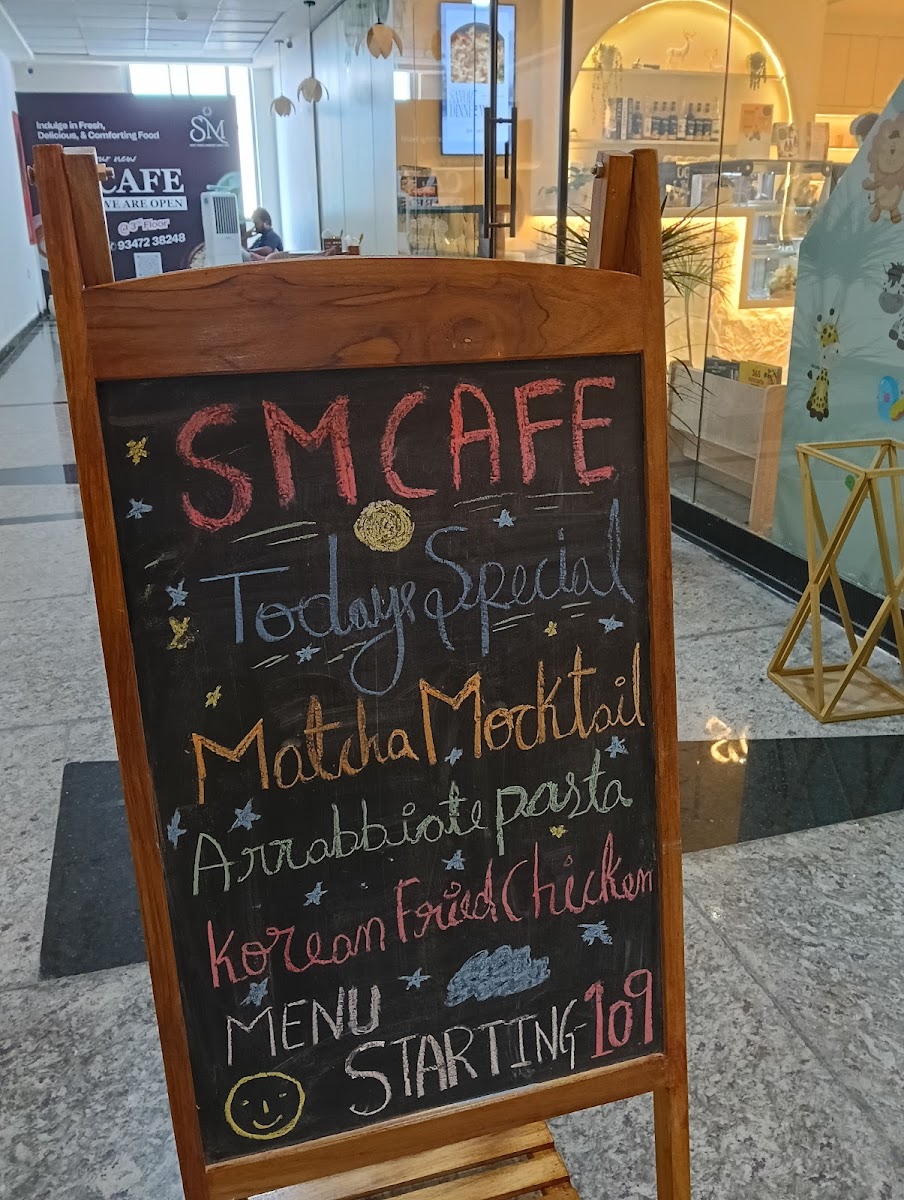 Indulge in Fresh,
Delicious, & Comforting Food
SM
our new
CAFE
WE ARE OPEN
@3rd Floor
93472 38248
SM CAFE
Todays Special
Matcha Mocktail
Arrabbiate pasta
Korean Fried Chicken
MENU
STARTING- 109